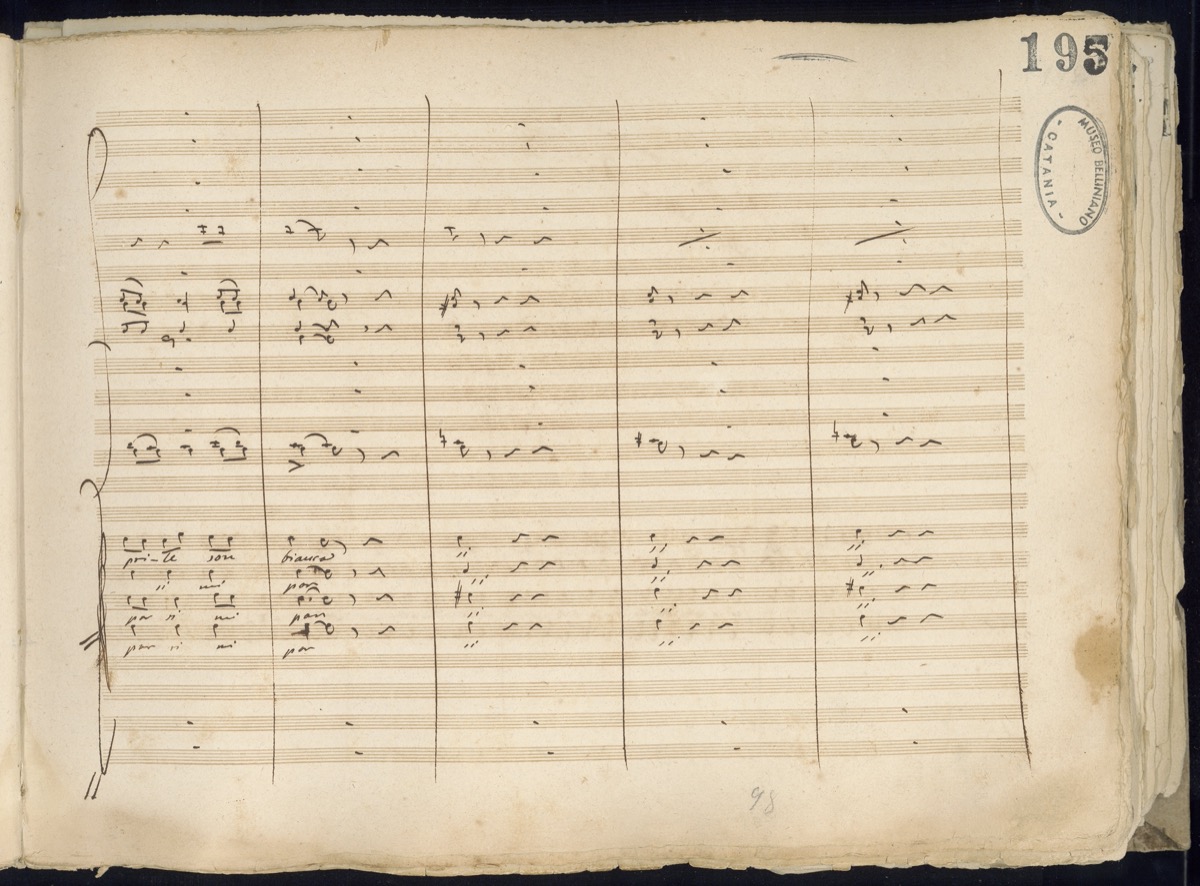 195
MUSEO BELLINIANO
- CATANIA -
pri-te son bianca
par
par si mi par
par si mi par
98